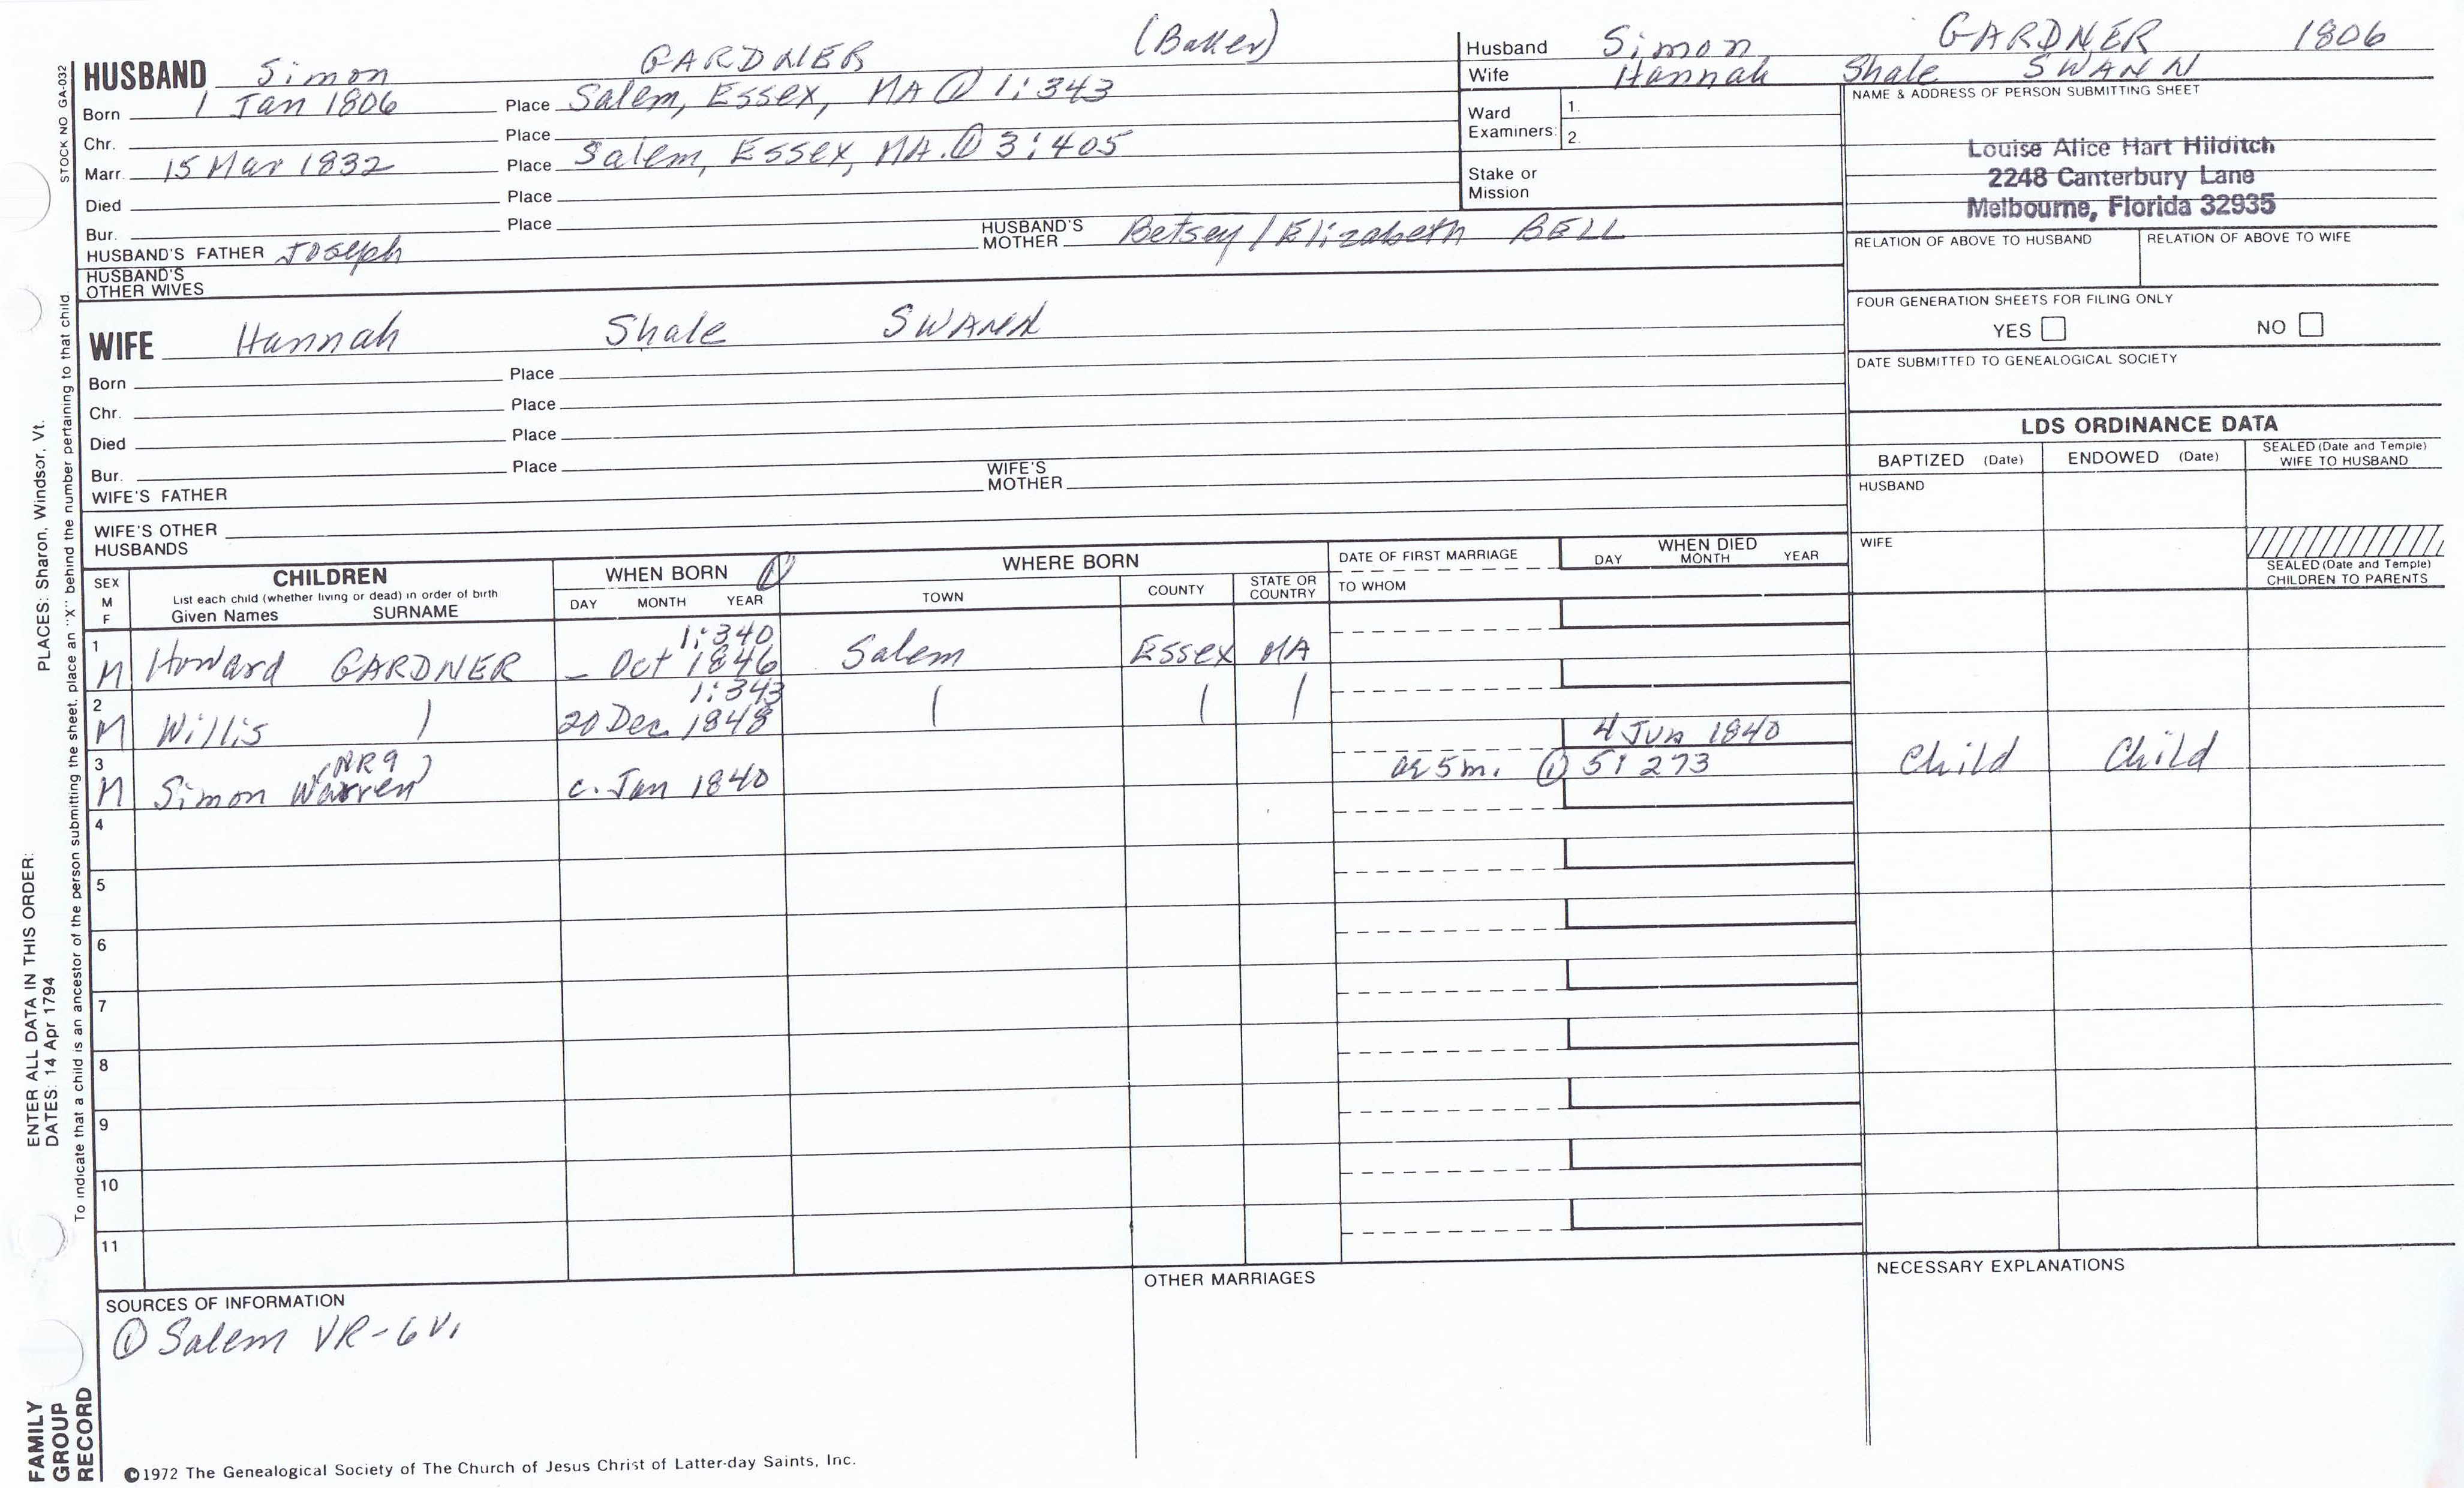 HUSBAND Simon GARDNER (Baker)
Born 1 Jan 1806 Place Salem, Essex, MA ① 1:343
Chr. Place
Marr. 15 Mar 1832 Place Salem, Essex, MA. ① 3:405
Died Place
Bur. Place
HUSBAND'S FATHER Joseph HUSBAND'S MOTHER Betsey / Elizabeth BELL
HUSBAND'S OTHER WIVES
WIFE Hannah Shale SWANN
Born Place
Chr. Place
Died Place
Bur. Place
WIFE'S FATHER WIFE'S MOTHER
WIFE'S OTHER HUSBANDS
Husband Simon GARDNER 1806
Wife Hannah Shale SWANN
Ward Examiners: 1. 2.
Stake or Mission
NAME & ADDRESS OF PERSON SUBMITTING SHEET
Louise Alice Hart Hilditch
2248 Canterbury Lane
Melbourne, Florida 32935
RELATION OF ABOVE TO HUSBAND RELATION OF ABOVE TO WIFE
FOUR GENERATION SHEETS FOR FILING ONLY
YES NO
DATE SUBMITTED TO GENEALOGICAL SOCIETY
LDS ORDINANCE DATA
BAPTIZED (Date) ENDOWED (Date) SEALED (Date and Temple) WIFE TO HUSBAND
HUSBAND
WIFE
SEALED (Date and Temple) CHILDREN TO PARENTS
SEX M F CHILDREN WHEN BORN ① WHERE BORN DATE OF FIRST MARRIAGE WHEN DIED
List each child (whether living or dead) in order of birth
Given Names SURNAME DAY MONTH YEAR TOWN COUNTY STATE OR COUNTRY TO WHOM DAY MONTH YEAR
1:340
1 M Howard GARDNER – Oct 1846 Salem Essex MA
1:343
2 M Willis 20 Dec. 1848
4 Jun 1840
3 M Simon Warren (NR9) c. Jan 1840 ae 5m. ① 5:273 Child Child
4
5
6
7
8
9
10
11
SOURCES OF INFORMATION
① Salem VR-6V.
OTHER MARRIAGES
NECESSARY EXPLANATIONS
©1972 The Genealogical Society of The Church of Jesus Christ of Latter-day Saints, Inc.
STOCK NO GA-032
To indicate that a child is an ancestor of the person submitting the sheet, place an "X" behind the number pertaining to that child
ENTER ALL DATA IN THIS ORDER:
DATES: 14 Apr 1794 PLACES: Sharon, Windsor, Vt.
FAMILY
GROUP
RECORD